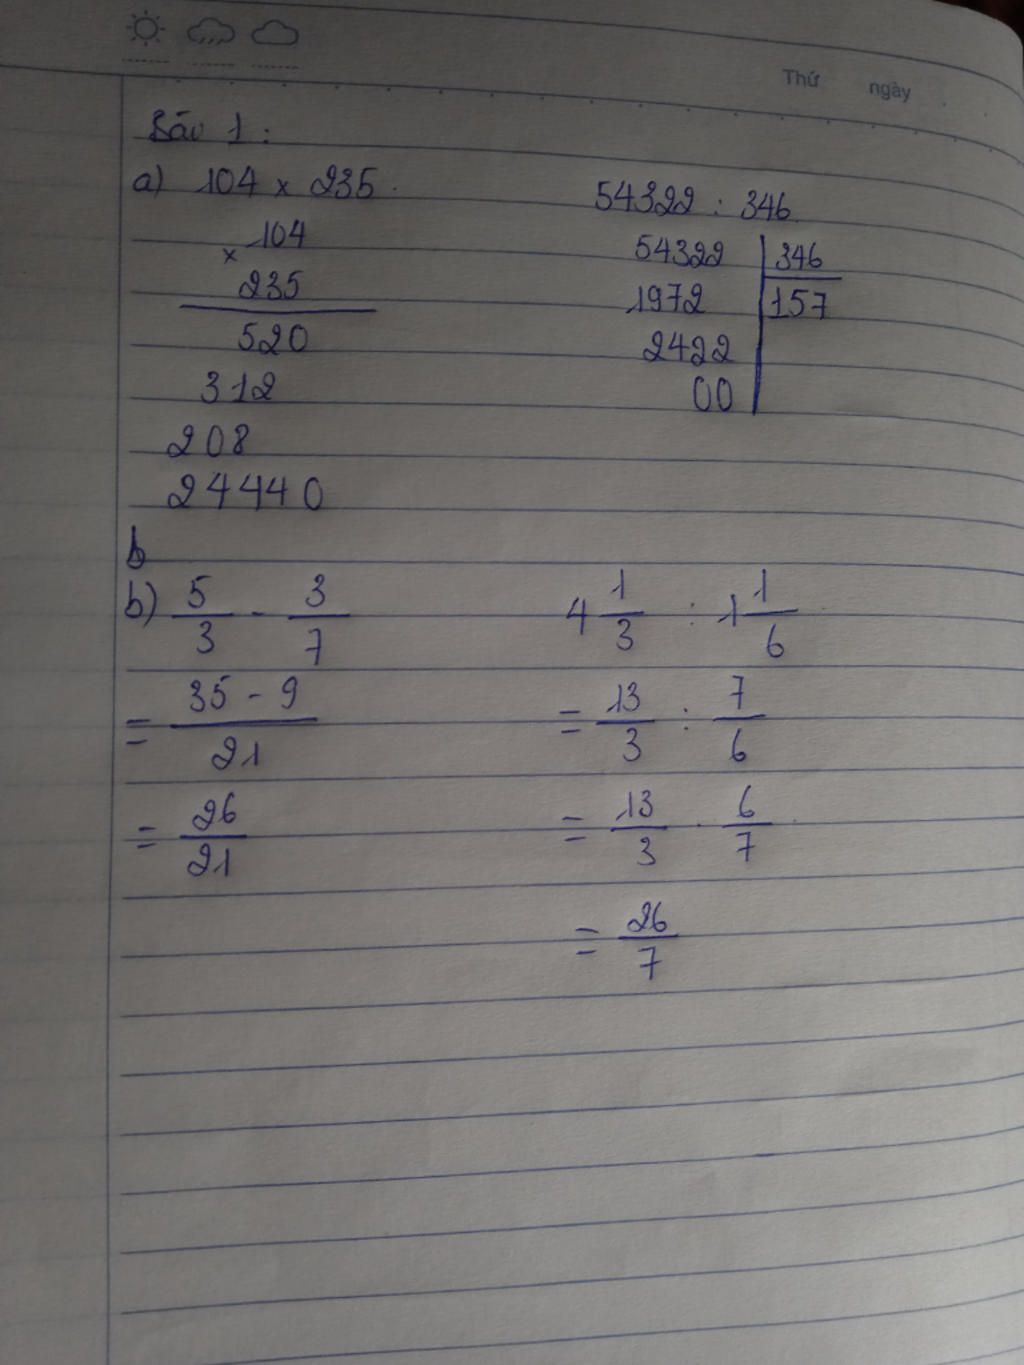 Thứ ngày
Bài 1 :
a) 104 x 235
x 104
235
520
312
208
24440
54322 : 346
54322 346
1972 157
2422
00
b
b) 5/3 - 3/7
= 35 - 9 / 21
= 26/21
4 1/3 : 1 1/6
= 13/3 : 7/6
= 13/3 . 6/7
= 26/7